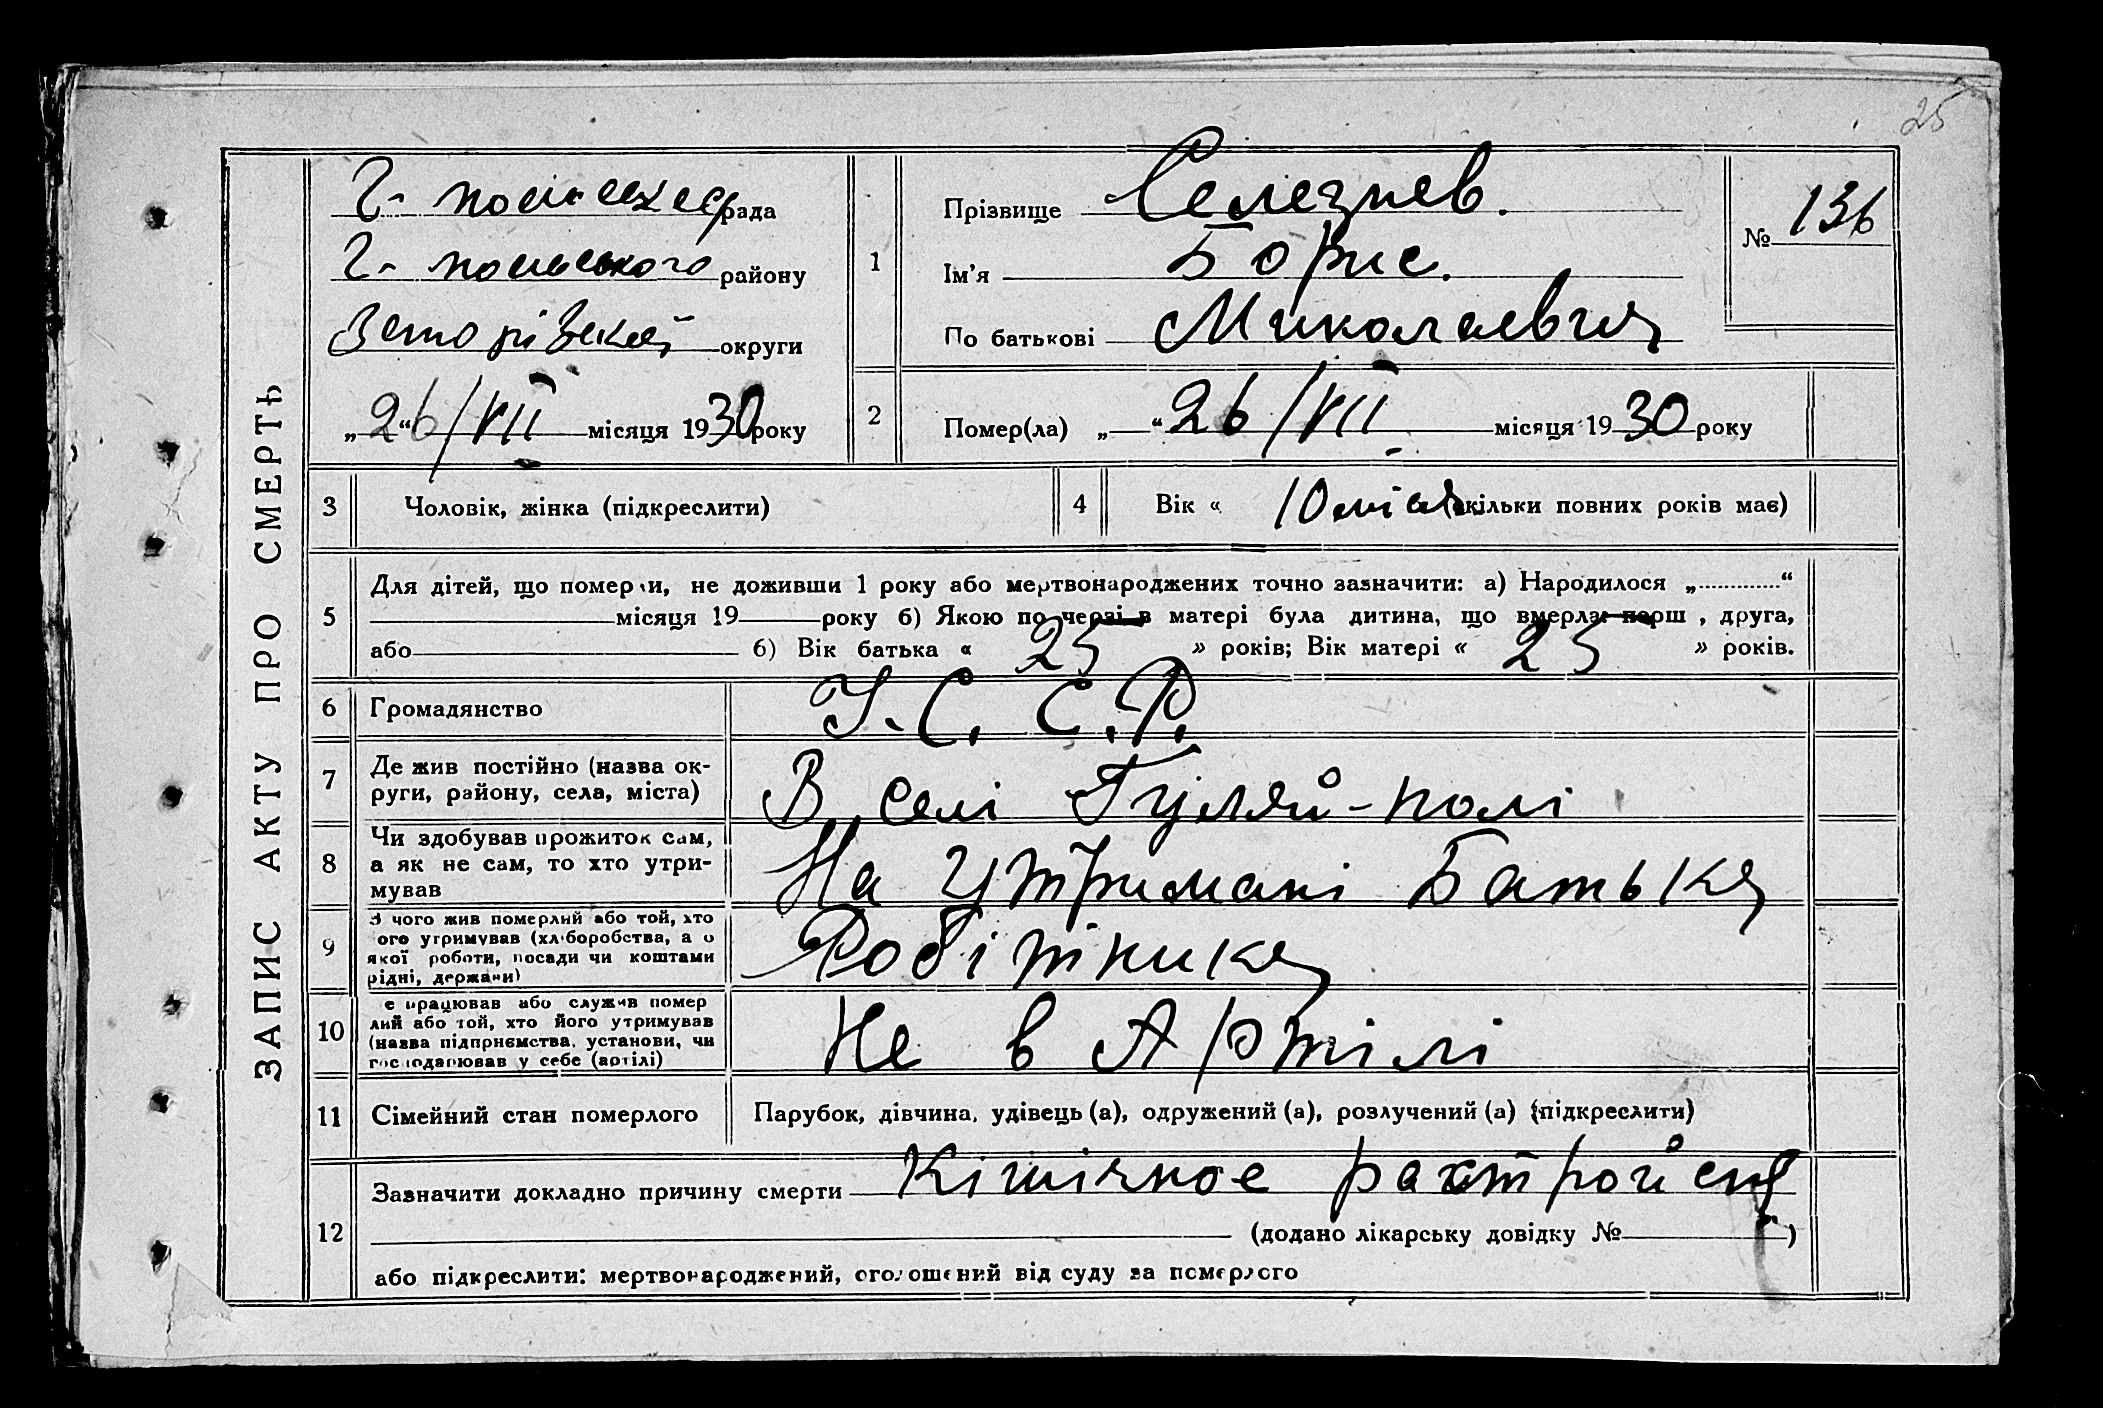 25
ЗАПИС АКТУ ПРО СМЕРТЬ
Г- польська рада
Г- польського району
Запорізької округи
„26“/VII місяця 1930 року
1
Прізвище Селезнев.
Ім’я Борис.
По батькові Миколаевич
№ 136
2
Помер(ла) „ “ 26/VII місяця 1930 року
3 Чоловік, жінка (підкреслити)
4 Вік « 10 міся (скільки повних років має)
5
Для дітей, що померли, не доживши 1 року або мертвонароджених точно зазначити: а) Народилося „ “
місяця 19 року б) Якою по черзі в матері була дитина, що вмерла: перш , друга,
або б) Вік батька « 25 » років; Вік матері « 25 » років.
6 Громадянство У.С.С.Р.
7 Де жив постійно (назва ок-
руги, району, села, міста) В селі Гуляй-полі
8 Чи здобував прожиток сам,
а як не сам, то хто утри-
мував На утримані Батька
9 З чого жив померлий або той, хто
ого утримував (хліборобства, а о
якої роботи, посади чи коштами
рідні, держави) Робітника
10 е працював або служив помер
лий або той, хто його утримував
(назва підприємства, установи, чи
господарював у себе (артілі) Не в Артілі
11 Сімейний стан померлого Парубок, дівчина, удівець (а), одружений (а), розлучений (а) (підкреслити)
12
Зазначити докладно причину смерти Кішічное растройсня
(додано лікарську довідку № )
або підкреслити: мертвонароджений, оголошений від суду за померлого